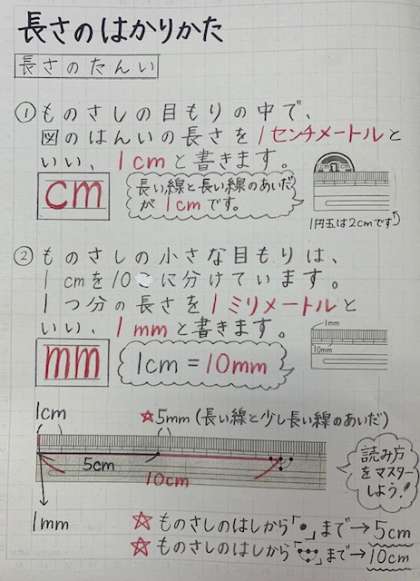 長さのはかりかた
長さのたんい
①ものさしの目もりの中で、
図のはんいの長さを1センチメートルと
いい、1cmと書きます。
cm
長い線と長い線のあいだ
が1cmです。
1円玉は2cmです
②ものさしの小さな目もりは、
1cmを10こに分けています。
1つ分の長さを1ミリメートルと
いい、1mmと書きます。
mm
1cm=10mm
1mm
10mm
1cm
☆5mm(長い線と少し長い線のあいだ)
5cm
10cm
1mm
読み方
をマスター
しよう!
☆ものさしのはしから「•」まで→5cm
☆ものさしのはしから「」まで→10cm